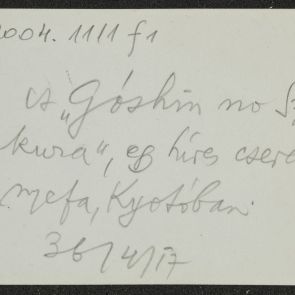 2004. 1111 f1
cs „Góshin no Sa
kura", egy híres csere
nyefa, Kyotóban.
36/4/17